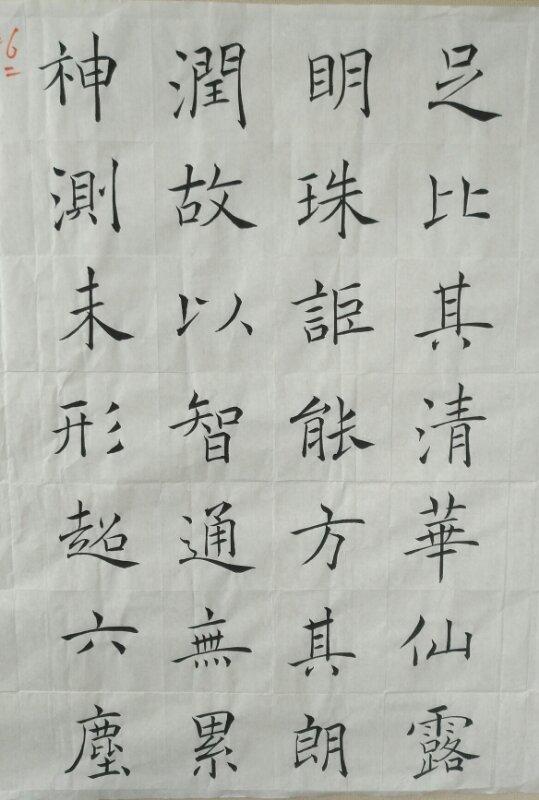 足比其清華仙露
明珠詎能方其朗
潤故以智通無累
神測未形超六塵
6